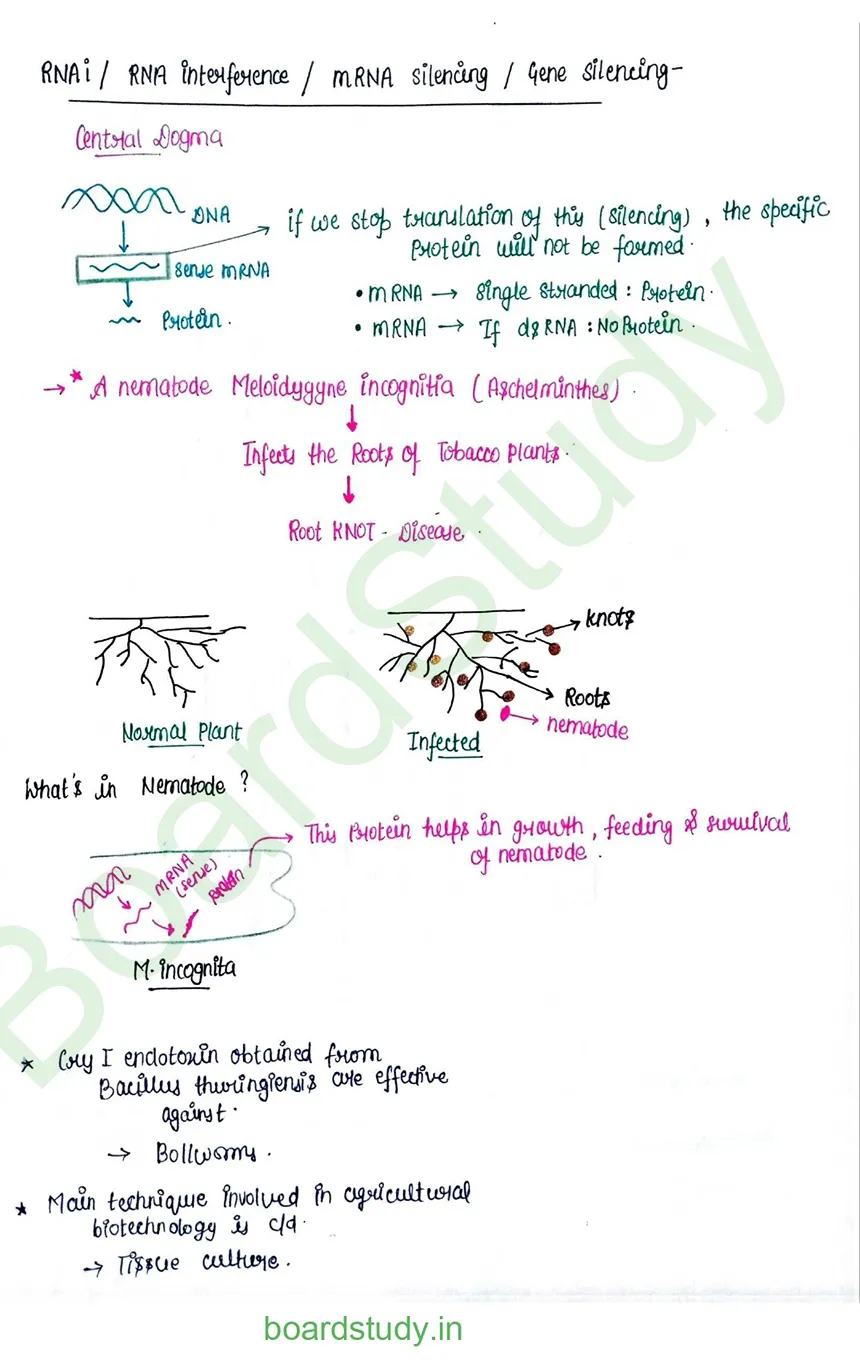 RNAi / RNA interference / mRNA silencing / Gene Silencing-
Central Dogma
DNA
if we stop translation of this (silencing), the specific
Protein will not be formed.
sense mRNA
• mRNA → single stranded : Protein.
Protein.
• mRNA → If dsRNA : No Protein.
→ * A nematode Meloidygyne incognitia (Aschelminthes).
Infects the Roots of Tobacco plants.
Root KNOT - Disease.
knots
Roots
nematode
Normal Plant
Infected
What's in Nematode ?
This protein helps in growth, feeding & survival
of nematode.
mRNA
(sense)
protein
M. incognita
* Cry I endotoxin obtained from
Bacillus thuringiensis are effective
against.
→ Bollworms.
* Main technique involved in agricultural
biotechnology is c/d.
→ Tissue culture.
BoardStudy
boardstudy.in